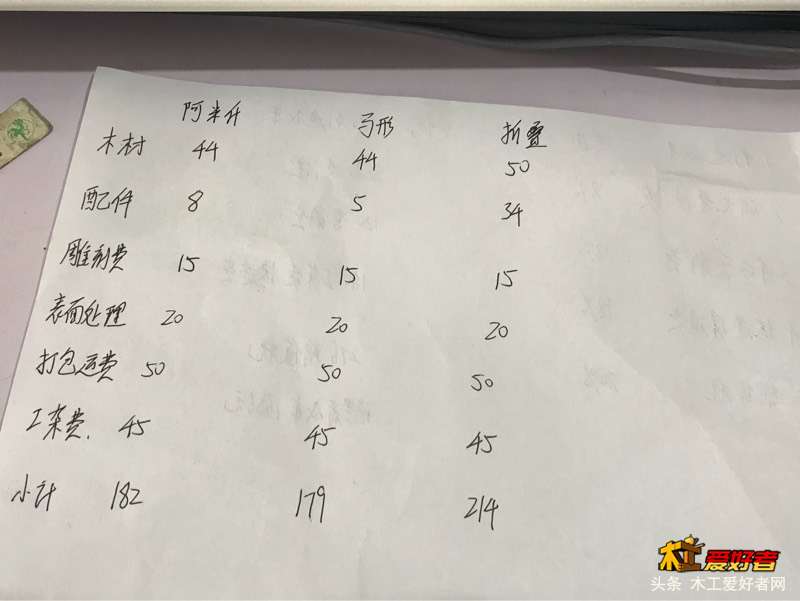 阿米仟 弓形 折叠
木材 44 44 50
配件 8 5 34
雕刻费 15 15 15
表面处理 20 20 20
打包运费 50 50 50
工杂费. 45 45 45
小计 182 179 214
木工爱好者
头条 木工爱好者网